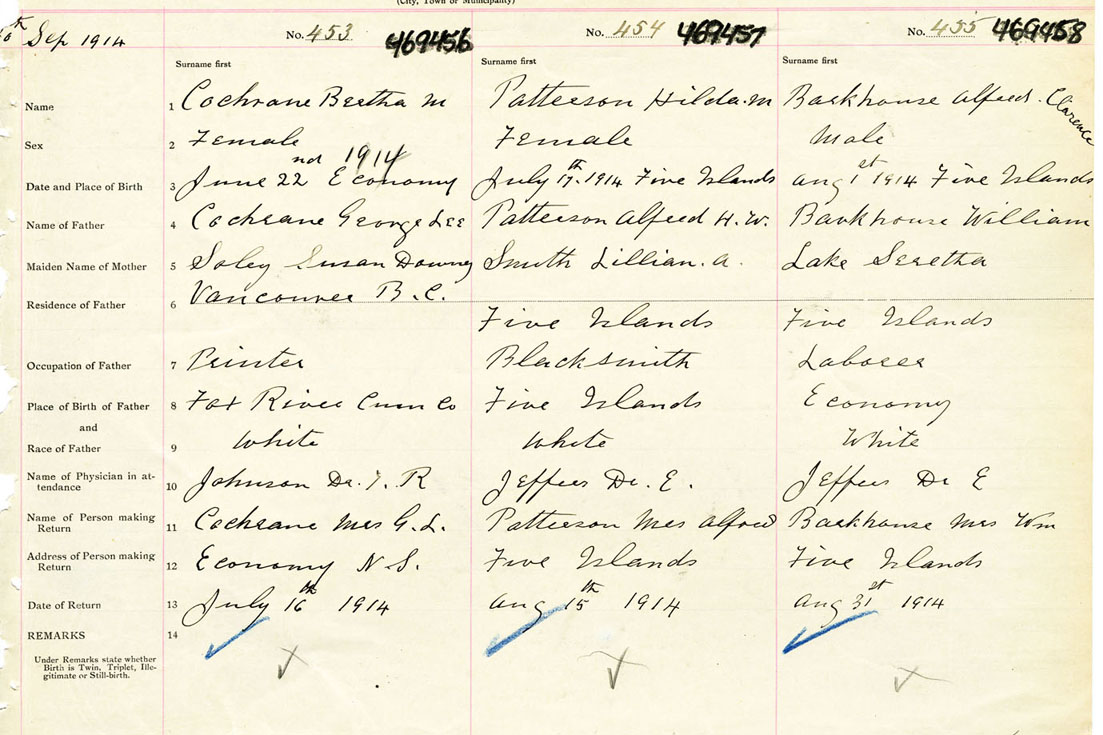 (City, Town or Municipality)
th Sep 1914
No. 453 469456
No. 454 469457
No. 455 469458
Surname first
Surname first
Surname first
Name 1 Cochrane Bertha M Patterson Hilda. M Backhouse Alfred. Clarence
Sex 2 Female Female Male
Date and Place of Birth 3 June 22nd 1914 Economy July 17th. 1914 Five Islands Aug 1st 1914 Five Islands
Name of Father 4 Cochrane George Lee Patterson Alfred H. W. Backhouse William
Maiden Name of Mother 5 Soley Susan Downey Smith Lillian. A. Lake Seretha
Residence of Father 6 Vancouver B.C. Five Islands Five Islands
Occupation of Father 7 Printer Blacksmith Laborer
Place of Birth of Father 8 Fox River Cum Co Five Islands Economy
and
Race of Father 9 White White White
Name of Physician in at-
tendance 10 Johnson Dr. T. R Jeffers Dr. E. Jeffers Dr E
Name of Person making
Return 11 Cochrane Mrs G. L. Patterson Mrs Alfred Backhouse Mrs Wm
Address of Person making
Return 12 Economy N.S. Five Islands Five Islands
Date of Return 13 July 16th 1914 Aug 15th 1914 Aug 31st 1914
REMARKS 14
Under Remarks state whether
Birth is Twin, Triplet, Ille-
gitimate or Still-birth.